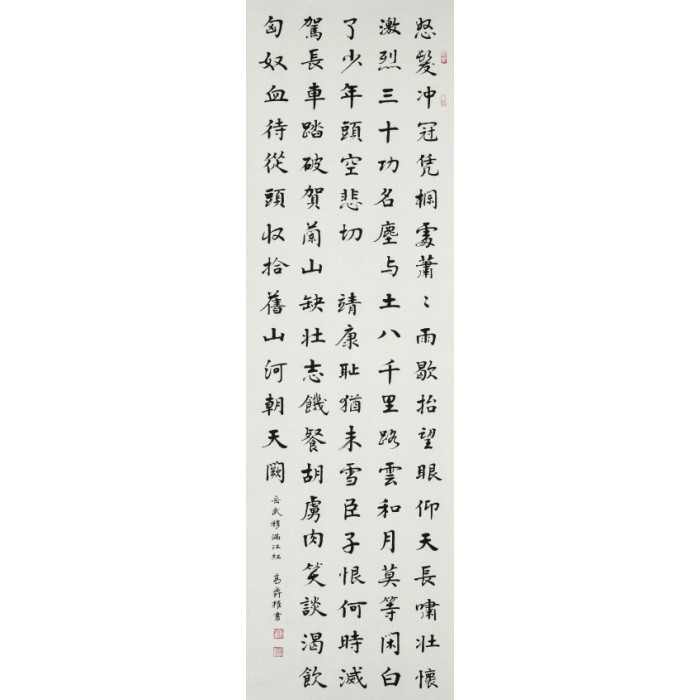 怒髮冲冠凭欄處蕭〻雨歇抬望眼仰天長嘯壯懷
激烈三十功名塵与土八千里路雲和月莫等闲白
了少年頭空悲切 靖康耻猶未雪臣子恨何時滅
駕長車踏破賀蘭山缺壮志饑餐胡虜肉笑談渴飲
匈奴血待從頭收拾舊山河朝天闕
岳武穆滿江紅 高齊權書